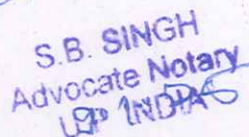 S.B. SINGH
Advocate Notary
INDIA